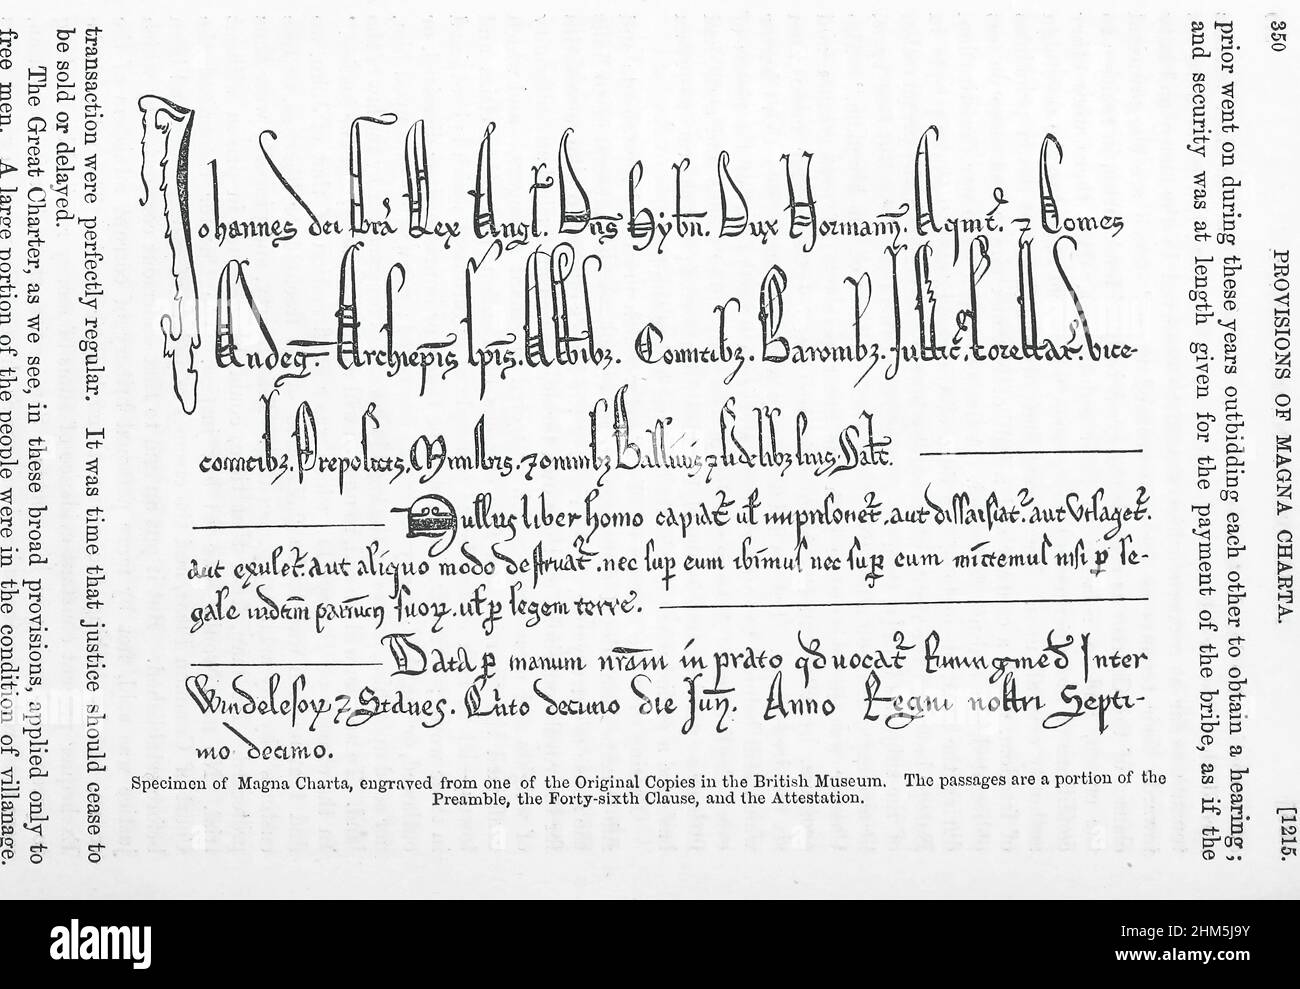 350 PROVISIONS OF MAGNA CHARTA. [1215.
prior went on during these years outbidding each other to obtain a hearing;
and security was at length given for the payment of the bribe, as if the
Johannes dei Gra Rex Angl. Dns Hybn. Dux Normann. Aqmt. ⁊ Comes
Andeg. Archiepis Epis. Abbibz. Comitibz. Baronibz. Justic. Forestar. Vice-
comitibz. Prepositis. Ministris. ⁊ omnibz Ballivis ⁊ fidelibz suis. Salt.
Nullus liber homo capiat ul imprisonet. aut dissaisiat. aut Utlaget.
aut exulet. aut aliquo modo destruat. nec sup eum ibimus nec sup eum mittemus nisi p le-
gale iudicm parium suoꝝ. ul p legem terre.
Data p manum nram in prato qd vocat Runingmed Inter
Windelesoꝝ ⁊ Stanes. Qinto decimo die Jun. Anno Regni nostri Septi-
mo decimo.
Specimen of Magna Charta, engraved from one of the Original Copies in the British Museum. The passages are a portion of the
Preamble, the Forty-sixth Clause, and the Attestation.
transaction were perfectly regular. It was time that justice should cease to
be sold or delayed.
The Great Charter, as we see, in these broad provisions, applied only to
free men. A large portion of the people were in the condition of villanage.
alamy
Image ID: 2HM5J9Y
www.alamy.com